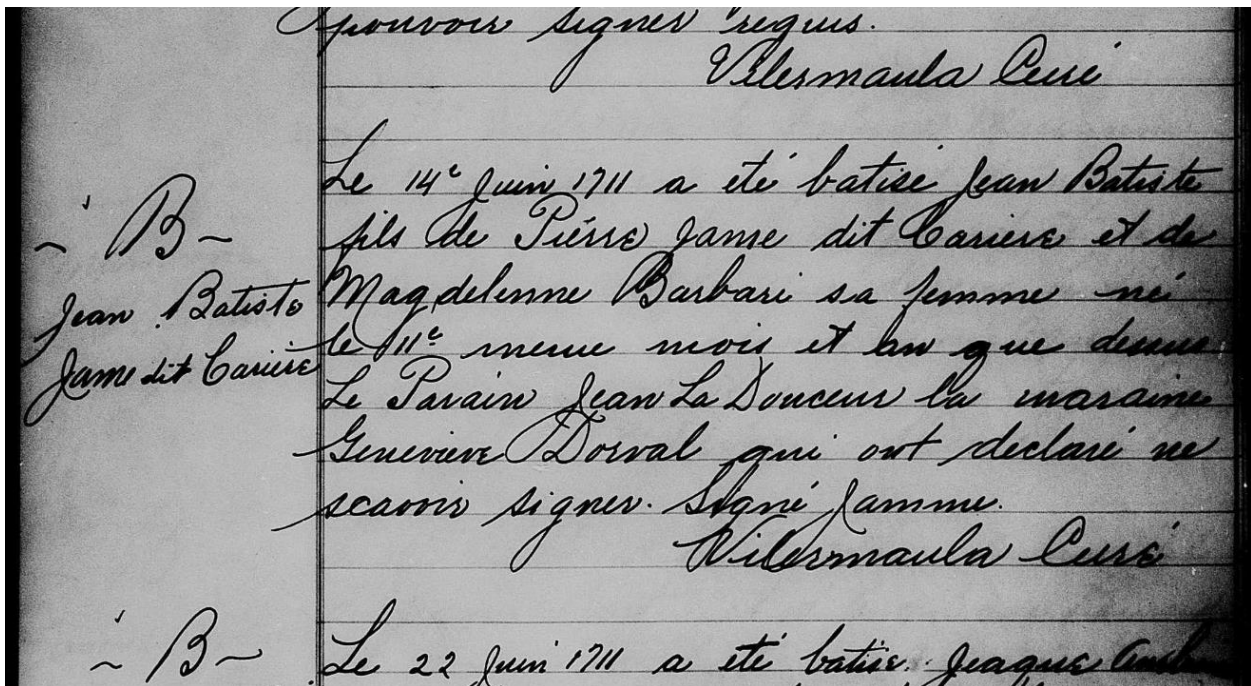 pouvoir signer requis.
Vilermaula Curé
Le 14e Juin 1711 a eté batisé Jean Batiste
fils de Piérre Jame dit Cariere et de
Magdelenne Barbari sa femme né
le 11e meme mois et an que dessus
Le Parain Jean La Douceur la maraine
Genevieve Dorval qui ont declaré ne
scavoir signer. Signé Jamme.
Vilermaula Curé
~ B ~
Jean Batiste
Jame dit Cariére
~ B ~
Le 22 Juin 1711 a eté batisé Jeaque